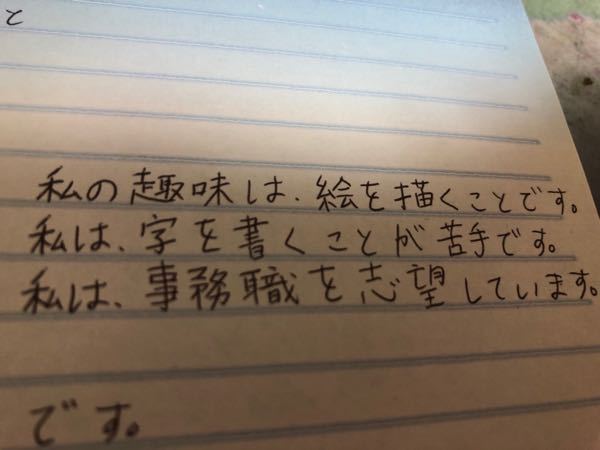 と
私の趣味は、絵を描くことです。
私は、字を書くことが苦手です。
私は、事務職を志望しています。
です。